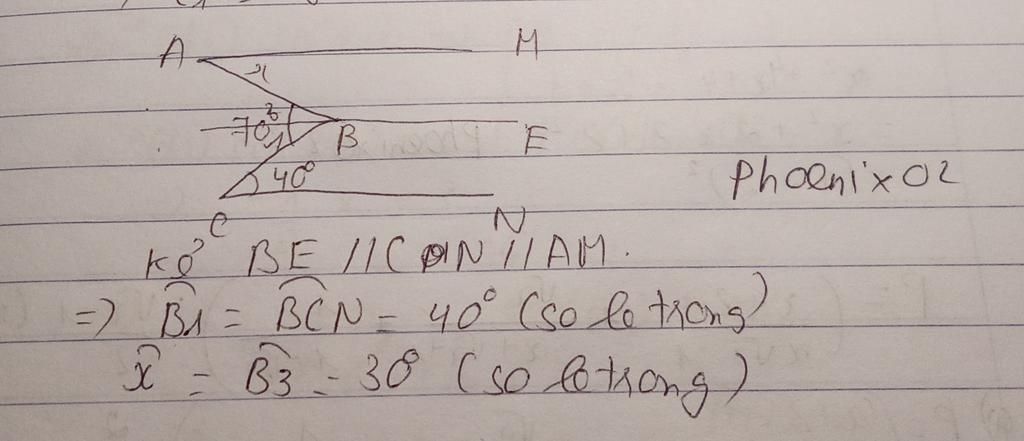 A M
x
70° 3
1 B E
40°
PhoenixO2
C N
Kẻ BE // CN // AM.
=> B1 = BCN = 40° (so le trong)
x = B3 = 30° (so le trong)